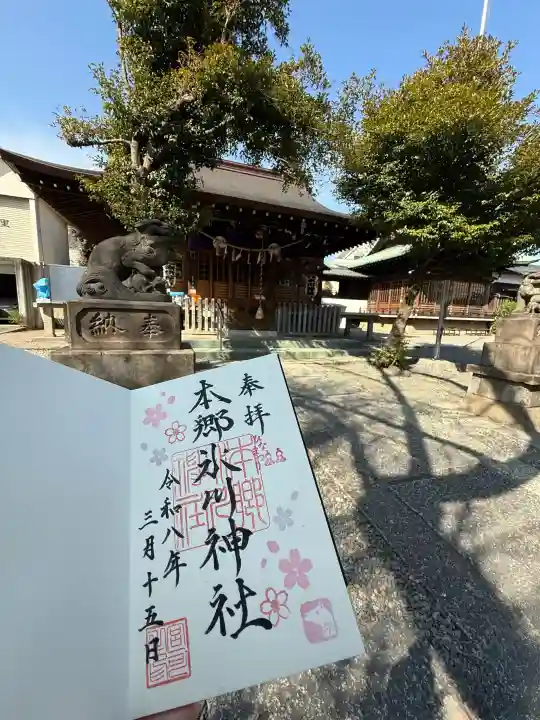 奉拝
本郷氷川神社
令和八年
三月十五日
納奉